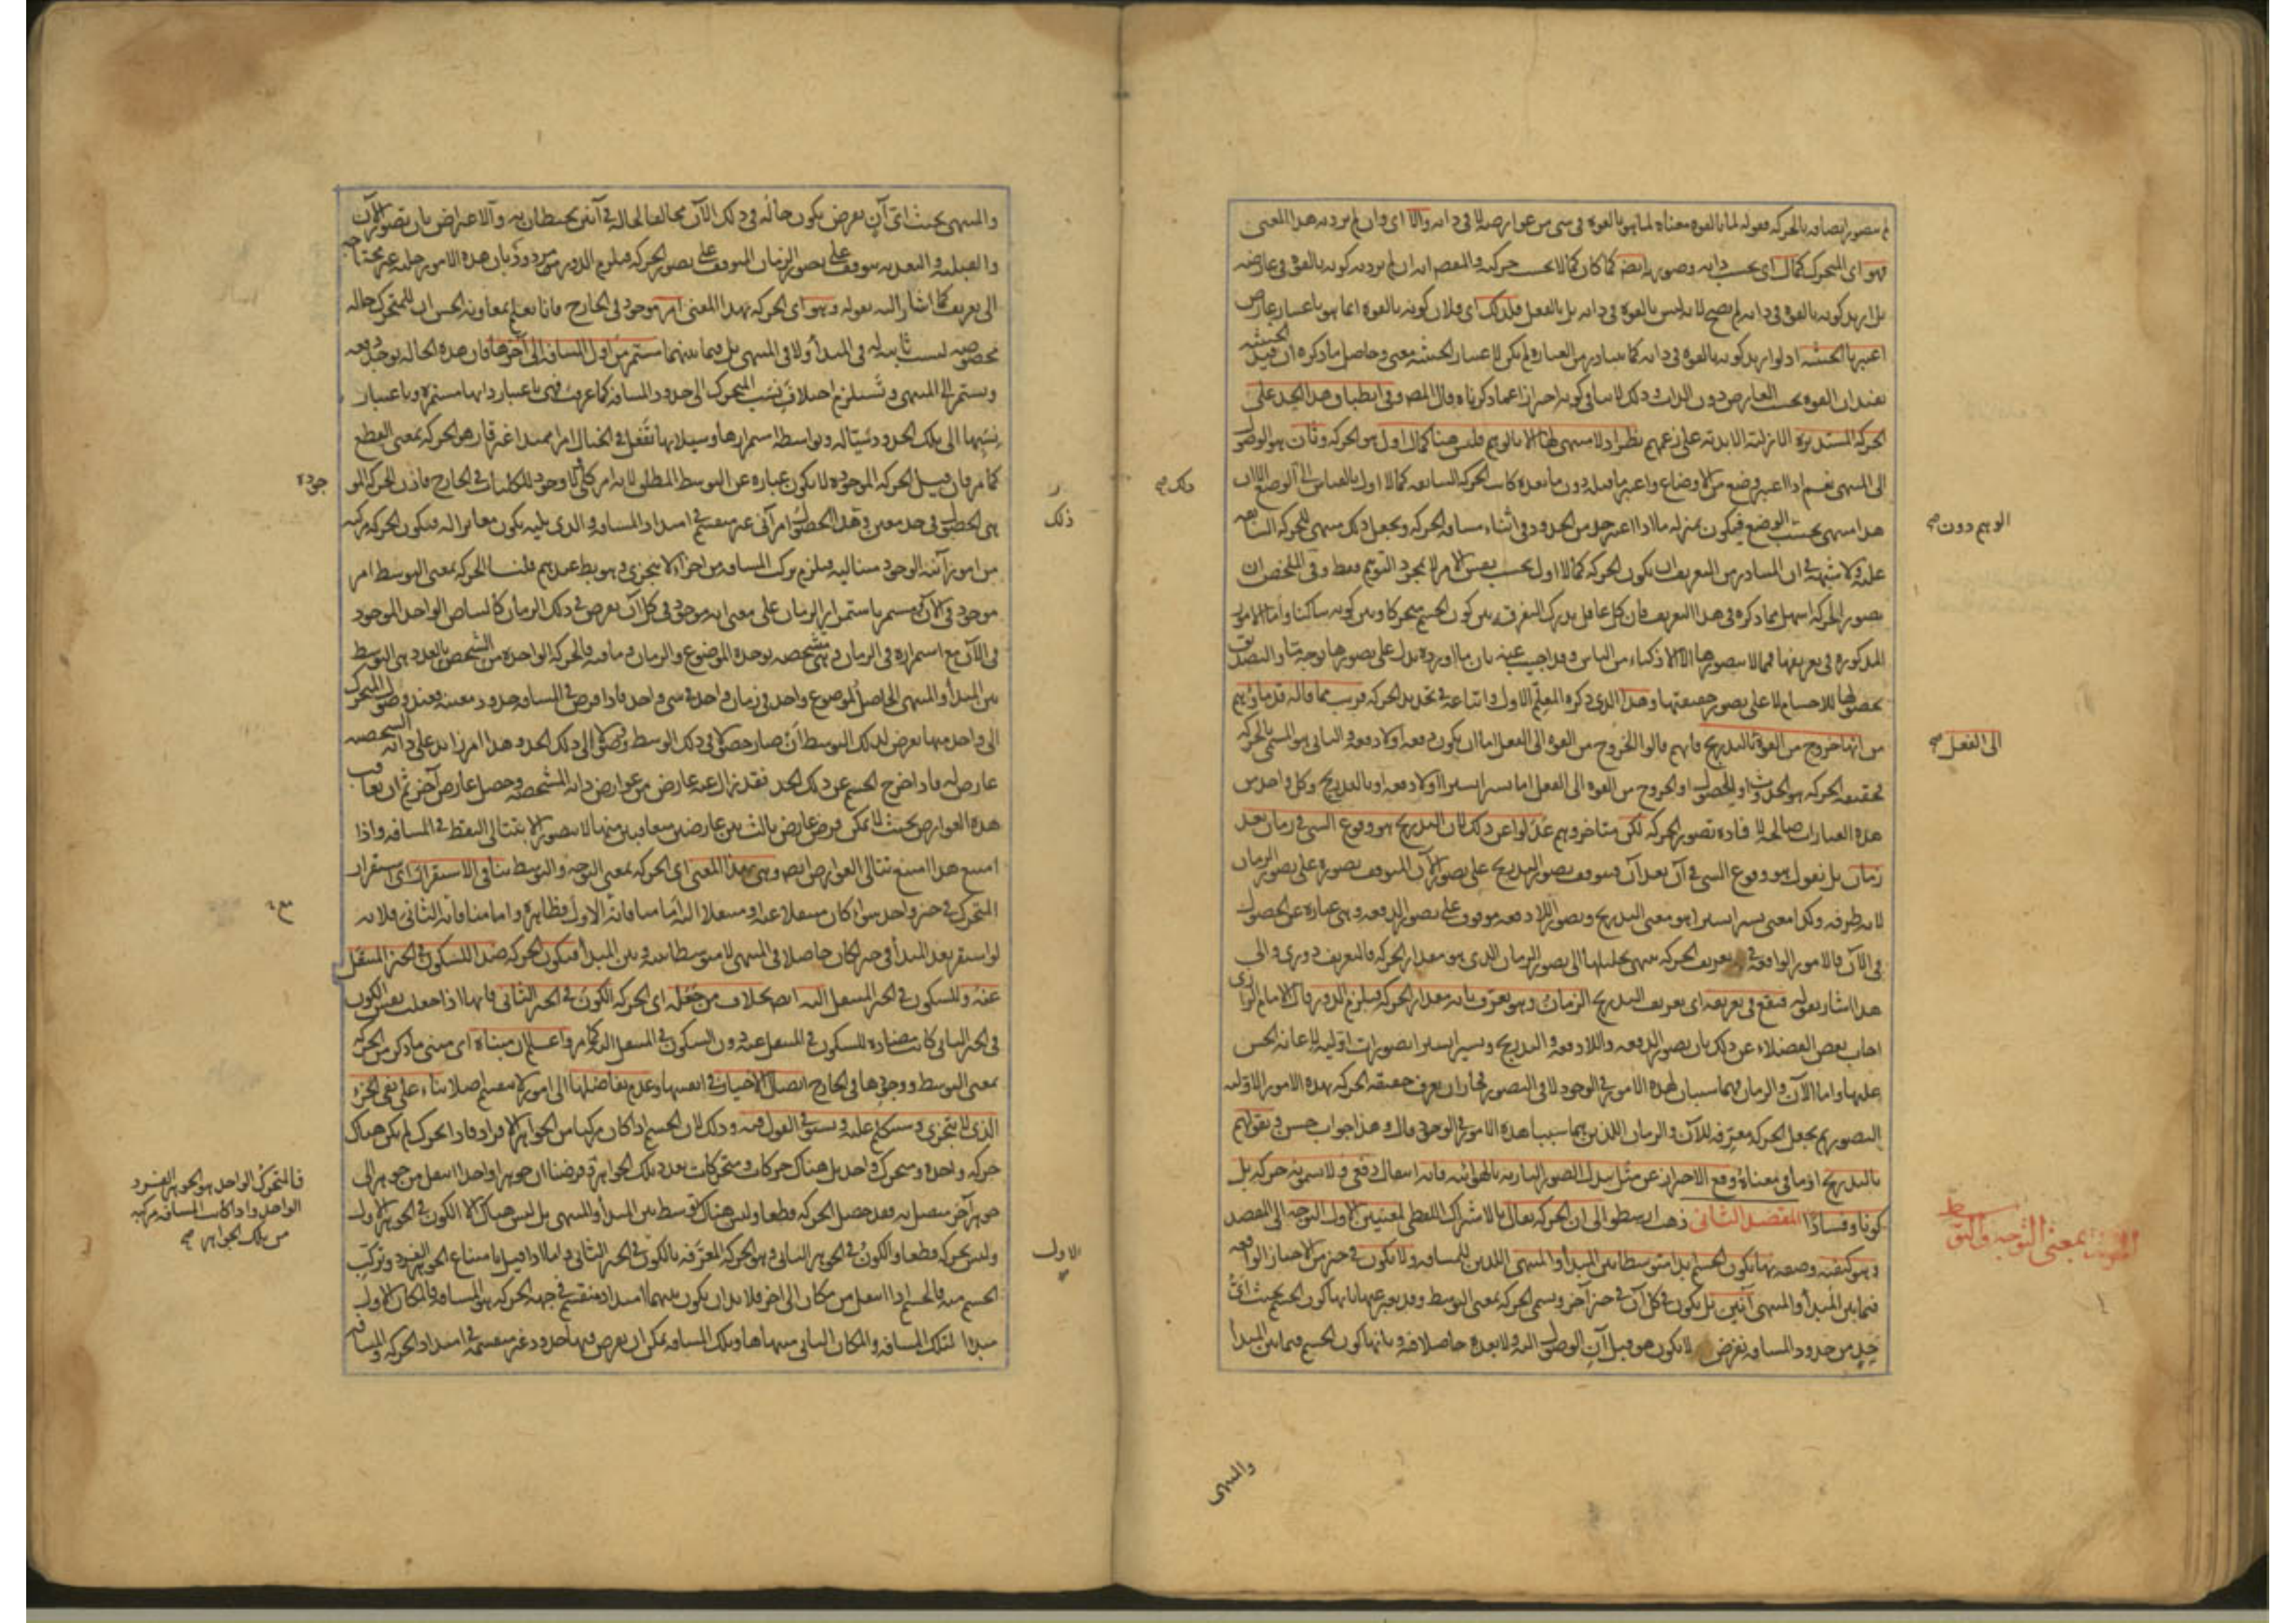 لم يتصور اتصافه بالحركة فقوله لما بالقوة معناه لما هو بالقوة في شيء من عوارضه لا في ذاته والا اي وان لم يرد به هذا المعنى
فهو اي المتحرك كمال اي بحسب ذاته وصورته ايضا كما كان كمالا بحسب حركته
بل اريد كونه بالقوة في ذاته لم يصح لانه ليس بالقوة في ذاته بل بالفعل فلذلك اي فلان كونه بالقوة انما هو باعتبار عارض
اعتبر بالحيثية اذ لو اريد كونه بالقوة في ذاته كما يتبادر من العبارة لم يكن لاعتبار الحيثية معنى وحاصل ما ذكره ان قيل
الحيثية
بحسب العارض دون الذات وذلك لا ينافي كونه احترازا عما ذكرناه قال المص وفي انطباق هذا الحد على
الحركة المستديرة الازلية الابدية على زعمهم نظر اذ لا منتهى لها الا بالوهم فليس هناك كمال اول هو الحركة وثان هو الوصول
الى المنتهى نعم اذا اعتبر وضع من الاوضاع واعتبر ما قبله دون ما بعده كانت الحركة السابقة كمالا اول بالقياس الى الوضع الا ان
هذا منتهى بحسب الوضع فيكون بمنزلة ما اذا اعتبر حد من الحدود في اثناء مسافة الحركة ويجعل ذلك منتهى للحركة السابقة
عليه ولا شبهة في ان المتبادر من التعريف ان يكون الحركة كمالا اول بحسب نفس الامر لا بمجرد التوهم فقط وفي الملخص ان
تصور الحركة اسهل مما ذكره في هذا التعريف فان كل عاقل يدرك التفرقة بين كون الجسم متحركا وبين كونه ساكنا واما الامور
المذكورة في تعريفها فمما لا يتصورها الا الاذكياء من الناس وقد اجيب عنه بان ما اورده يدل على تصورها بوجه ما والتصديق
بحصولها للاجسام لا على تصور حقيقتها وهذا الذي ذكره المعلم الاول واتباعه في تحديد الحركة قريب مما قاله قدماؤهم
من انها خروج من القوة بالتدريج فانهم قالوا الخروج من القوة الى الفعل اما ان يكون دفعة او لا دفعة والثاني هو المسمى بالحركة
فحقيقة الحركة هو الحدوث او الحصول او الخروج من القوة الى الفعل اما يسيرا يسيرا او لا دفعة او بالتدريج وكل واحد من
هذه العبارات صالحة لافادة تصور الحركة لكن متاخروهم عدلوا عن ذلك لان التدريج هو وقوع الشيء في زمان بعد
زمان بل نقول هو وقوع الشيء في آن بعد آن فيتوقف تصور التدريج على تصور الآن المتوقف تصوره على تصور الزمان
لانه طرفه وكذا معنى يسيرا يسيرا هو معنى التدريج وتصور اللا دفعة موقوف على تصور الدفعة وهي عبارة عن الحصول
في الآن فالامور الواقعة في تعريف الحركة ينتهي تحليلها الى تصور الزمان الذي هو مقدار الحركة فالتعريف دوري والى
هذا اشار بقوله فيقع في تعريفه اي تعريف التدريج الزمان وهو يعرف بانه مقدار الحركة فيلزم الدور قال الامام الرازي
اجاب بعض الفضلاء عن ذلك بان تصور الدفعة واللا دفعة والتدريج ويسيرا يسيرا تصورات اولية لاعانة الحس
عليها واما الآن والزمان فهما سببان لهذه الامور في الوجود لا في التصور فجاز ان يعرف حقيقة الحركة بهذه الامور الاولية
التصور ثم يجعل الحركة معرفة للآن والزمان اللذين هما سببا هذه الامور في الوجود قال وهذا جواب حسن وبقولهم
بالتدريج او ما في معناه وقع الاحتراز عن مثل تبدل الصورة النارية بالهوائية فانه انتقال دفعي ولا نسميه حركة بل
كونا وفسادا المقصد الثاني ذهب ارسطو الى ان الحركة تقال بالاشتراك اللفظي لمعنيين الاول التوجه الى المقصد
وهو كيفية وصفة بها يكون الجسم ابدا متوسطا بين المبدأ والمنتهى اللذين للمسافة ولا يكون في حيز من الاحياز الواقعة
فيما بين المبدأ والمنتهى آنين بل يكون في كل آن في حيز آخر وتسمى الحركة بمعنى التوسط وقد يعبر عنها بانها كون الجسم بحيث اي
حد من حدود المسافة يفرض لا يكون هو قبل آن الوصول اليه ولا بعده حاصلا فيه وبانها كون الجسم فيما بين المبدأ
والمنتهى
الوهم دون صح
الى الفعل صح
الحركة بمعنى التوجه والتوسط
والمنتهى بحيث اي آن يفرض يكون حاله في ذلك الآن مخالفا لحاله في آنين يحيطان به والاعتراض بان تصور الآن
والقبلية والبعدية يتوقف على تصور الزمان المتوقف على تصور الحركة فيلزم الدور مردود بان هذه الامور جلية غير محتاجة
الى تعريف كما اشار اليه بقوله وهو اي الحركة بهذا المعنى امر موجود في الخارج فانا نعلم بمعاونة الحس ان للمتحرك حالة
مخصوصة ليست ثابتة له في المبدأ ولا في المنتهى بل فيما بينهما مستمر من اول المسافة الى آخرها فان هذه الحالة توجد دفعة
ويستمر الى المنتهى وتستلزم اختلاف نسب المتحرك الى حدود المسافة كما عرفت فهي باعتبار ذاتها مستمرة وباعتبار
نسبها الى تلك الحدود سيالة وبواسطة استمرارها وسيلانها تفعل في الخيال امرا ممتدا غير قار هو الحركة بمعنى القطع
كما مر فان قيل الحركة الموجودة لا يكون عبارة عن التوسط المطلق لانه امر كلي ولا وجود للكليات في الخارج فاذن الحركة المو
هي الحصول في حد معين وهذا الحصول امر آني غير منقسم في امتداد المسافة والذي يليه يكون مغايرا له فيكون الحركة مركبة
من امور آنية الوجود متتالية فيلزم تركب المسافة من اجزاء لا يتجزى وهو بط عندهم قلنا الحركة بمعنى التوسط امر
موجود في الآن مستمر باستمرار الزمان على معنى انه موجود في كل آن يفرض في ذلك الزمان كالبياض الواحد الموجود
في الآن مع استمراره في الزمان وهي متشخصة بوحدة الموضوع والزمان وما فيه فالحركة الواحدة بالعدد هي التوسط
بين المبدأ والمنتهى الحاصل لموضوع واحد في زمان واحد في شيء واحد فاذا فرض في المسافة حدود معينة فعند وصول المتحرك
الى واحد منها يعرض لذلك التوسط ان صار حصولا في ذلك الوسط ووصولا الى ذلك الحد وهذا امر زائد على ذاته الشخصية
عارض له فاذا خرج الجسم عن ذلك الحد فقد زال عنه عارض من عوارض ذاته المشخصة وحصل عارض آخر ثم ان تعاقب
هذه العوارض بحيث لا يمكن فرض عارض ثالث بين عارضين متعاقبين منها لا يتصور الا بتتالي النقط في المسافة واذا
امتنع هذا امتنع تتالي العوارض ايضا وهي بهذا المعنى اي الحركة بمعنى التوجه والتوسط ينافي الاستقرار اي استقرار
المتحرك في حيز واحد سواء كان منتقلا عنه او منتقلا اليه اما منافاة الاول فظاهرة واما منافاته الثاني فلانه
لو استقر بعد المبدأ في حيز لكان حاصلا في المنتهى لا متوسطا بينه وبين المبدأ فيكون الحركة ضدا للسكون في الحيز المنتقل
عنه وللسكون في الحيز المنتقل اليه ايضا بخلاف من جعله اي الحركة الكون في الحيز الثاني فانها اذا جعلت نفس الكون
في الحيز الثاني كانت مضادة للسكون في المنتقل عنه دون السكون في المنتقل اليه كما مر واعلم ان مبناه اي مبنى ما ذكر من الحركة
بمعنى التوسط ووجودها في الخارج اتصال الاحياز في انفسها وعدم تفاصلها الى امور لا منقسم اصلا بناء على نفي الجزء
الذي لا يتجزى وسنتكلم عليه ونستوفي القول فيه وذلك لان الجسم اذا كان مركبا من الجواهر الافراد فاذا تحرك لم يكن هناك
حركة واحدة ومتحرك واحد بل هناك حركات ومتحركات بعدد تلك الجواهر فاذا فرضنا ان جوهرا واحدا انتقل من جوهر الى
جوهر آخر متصل به فقد حصل الحركة قطعا وليس هناك توسط بين المبدأ والمنتهى بل ليس هناك الا الكون في الجوهر الاول
وليس بحركة قطعا والكون في الجوهر الثاني وهو الحركة المعرفة بالكون في الحيز الثاني واما اذا قيل بامتناع الجوهر الفرد وتركب
الجسم منه فالجسم اذا انتقل من مكان الى آخر فلا بد ان يكون بينهما امتداد منقسم في جهة الحركة هو المسافة فالمكان الاول
مبدأ لتلك المسافة والمكان الثاني منتهاها وتلك المسافة يمكن ان يفرض فيها حدود غير منقسمة في امتداد الحركة والمسافة
جودة
ذلك
الاول
فالمتحرك الواحد هو الجوهر الفرد
الواحد واذا كانت المسافة مركبة
من تلك الجواهر صح